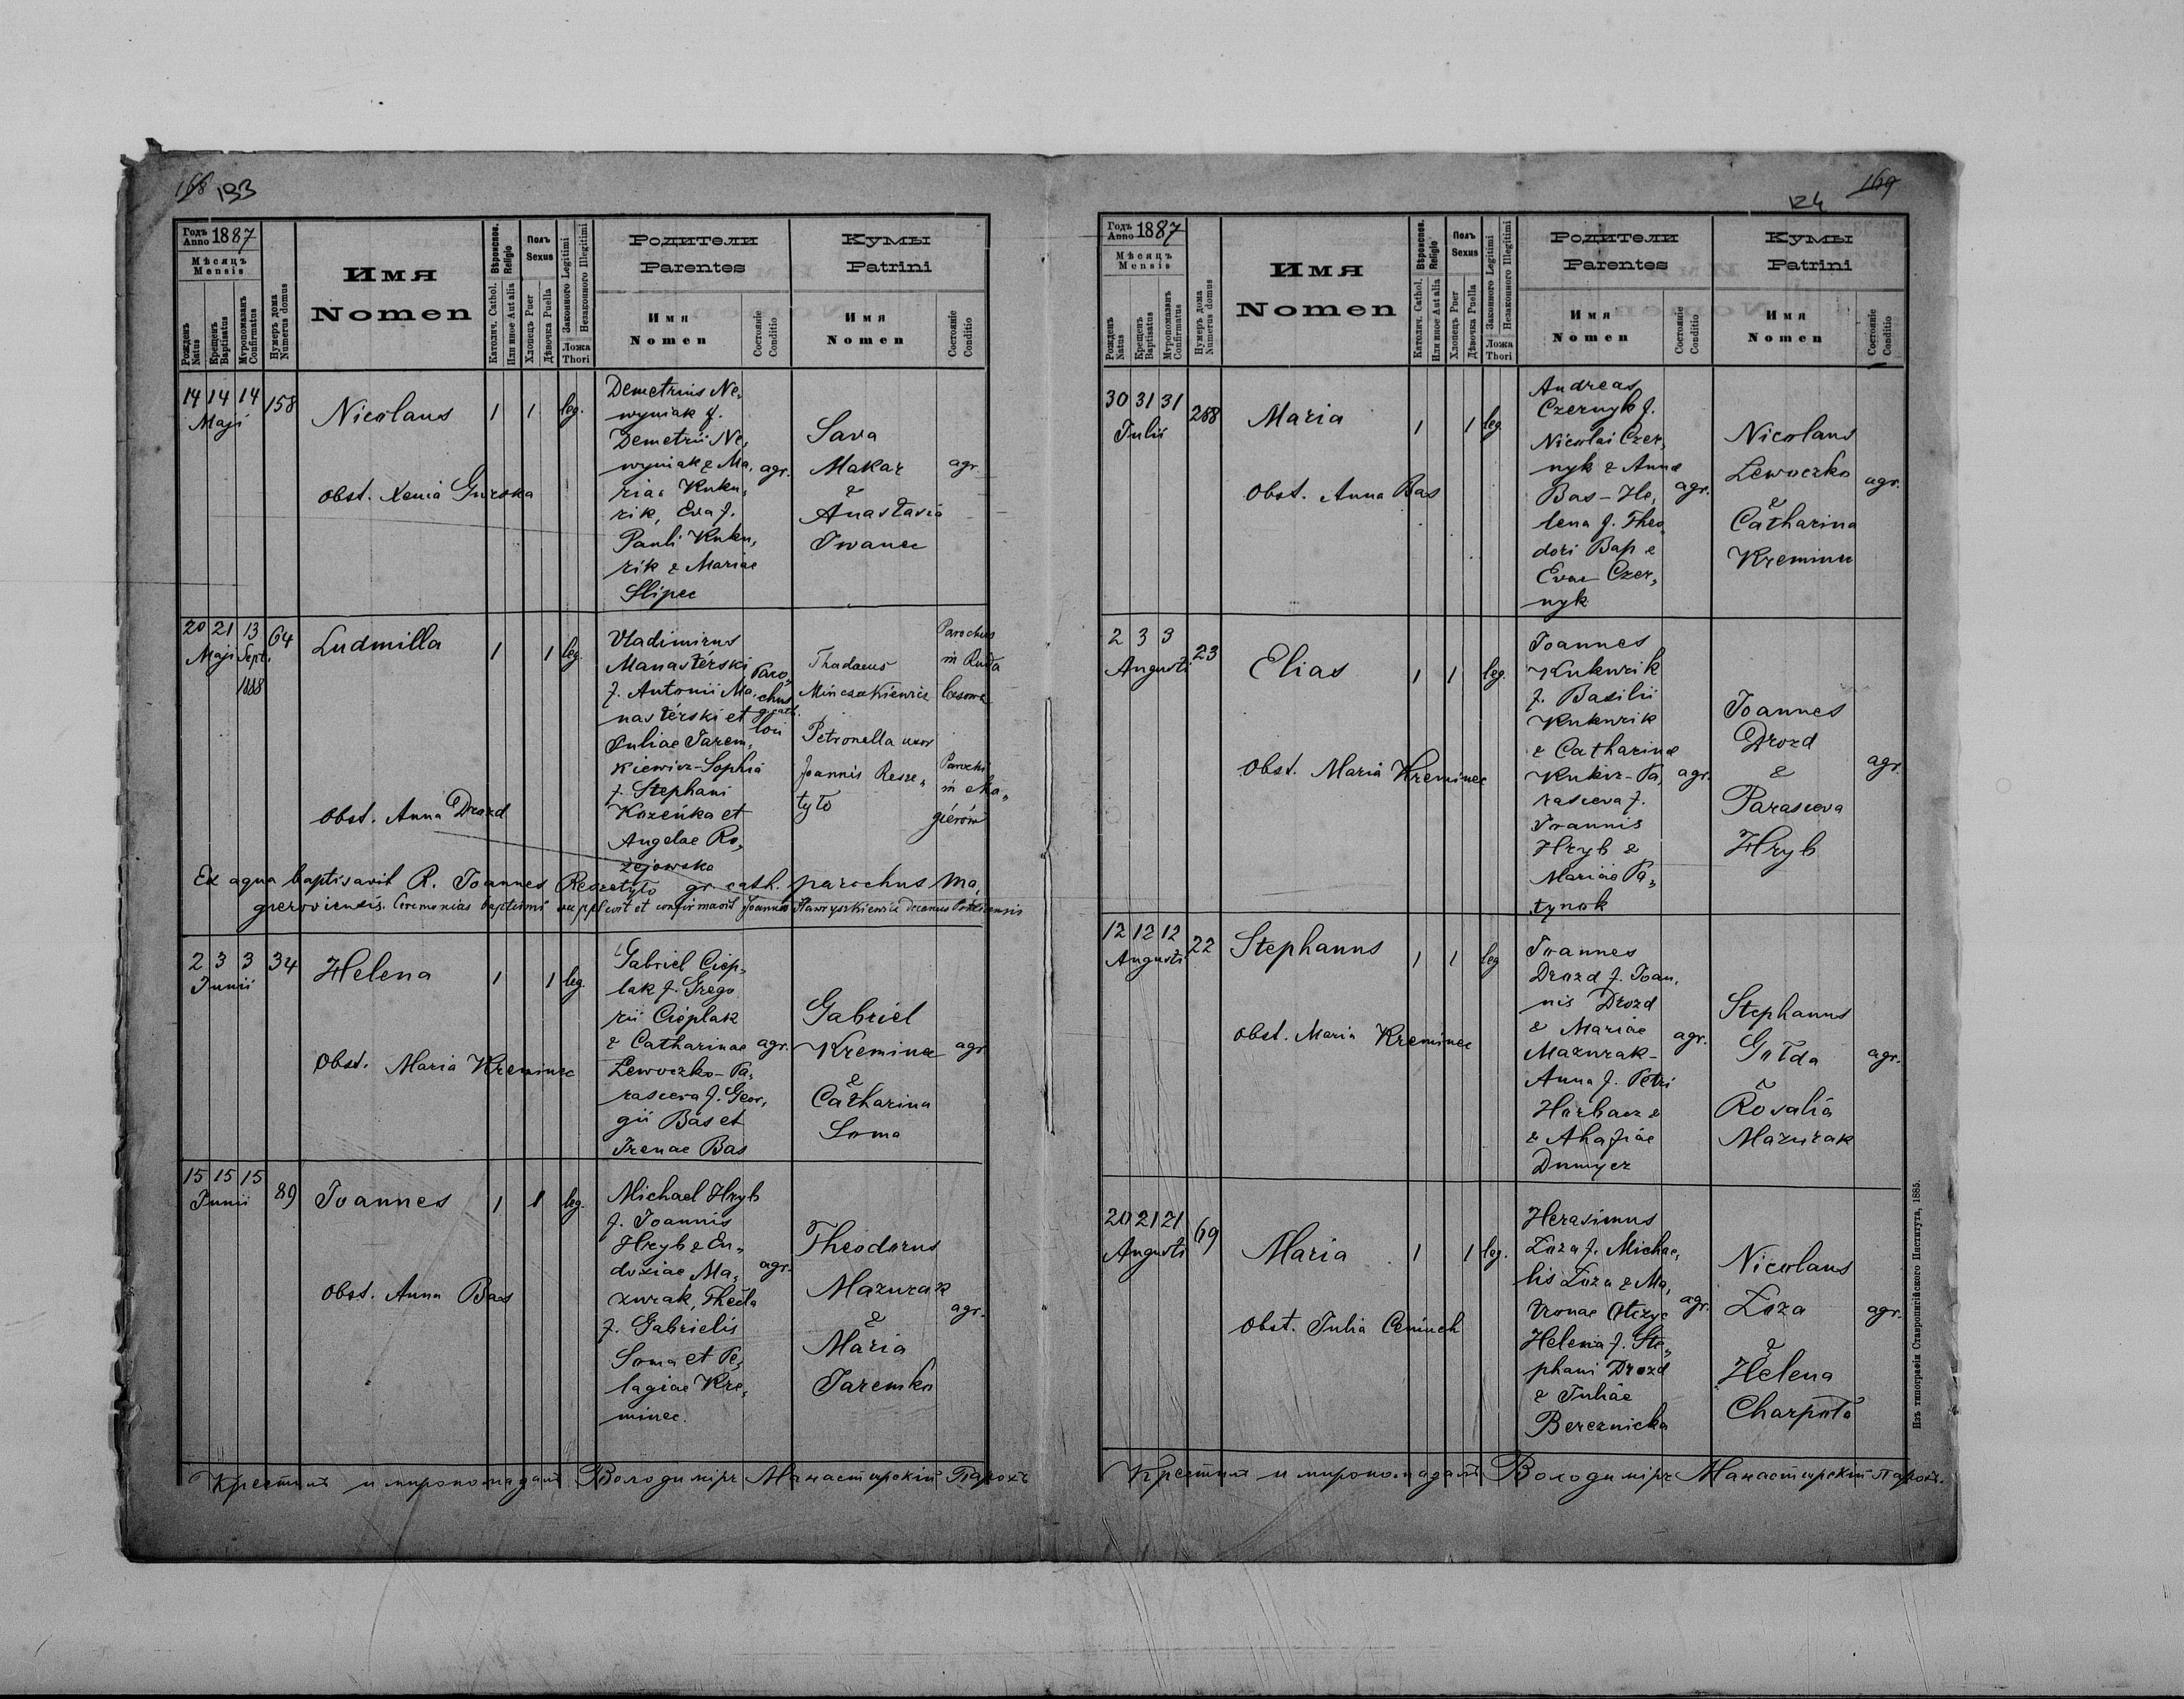 168 133
Годъ Anno 1887
Мѣсяцъ Mensis
Рожденъ Natus
Крещенъ Baptisatus
Мѵропомазанъ Confirmatus
Нумеръ дома Numerus domus
Имя Nomen
Вѣроиспов. Religio
Католич. Cathol.
Или иное Aut alia
Полъ Sexus
Хлопецъ Puer
Дѣвочка Puella
Законного Legitimi
Незаконного Illegitimi
Ложа Thori
Родители Parentes
Имя Nomen
Состояніе Conditio
Кумы Patrini
Имя Nomen
Состояніе Conditio
14 14 14
Maji
158
Nicolaus
1 1 leg.
Obst. Xenia Gurska
Demetrius Ne„
wyniak f.
Demetrii Ne„
wyniak & Ma„
riae Kuku„
rik, Eva f.
Pauli Kuku„
rik & Mariae
Slipec
agr.
Sava
Makar
&
Anastasia
Iwanec
agr.
20 21 13
Maji Sept.
1888
64
Ludmilla
1 1 leg.
Obst. Anna Drozd
Vladimirus
Manastérski
f. Antonii Ma„
nastérski et
Juliae Jarem„
kiewicz-Sophia
f. Stephani
Kozeńka et
Angelae Ro„
zejowska
Paro„
chus
g. cath.
loci
Thadaeus
Minczakiewicz
Petronella uxor
Joannis Resze„
tyło
Parochus
in Ruda
Parochi
in Ma„
gierów
Ex aqua baptisavit R. Joannes Reszetyło gr. cath. parochus Ma„
gieroviensis. Ceremonias baptismi supplevit et confirmavit Joannes Hawryszkiewicz decanus
2 3 3
Junii
34
Helena
1 1 leg.
Obst. Maria Kreminec
Gabriel Ciep„
lak f. Grego
rii Cieplak
& Catharinae
Lewoczko-Pa„
rasceva f. Geor„
gii Bas et
Irenae Bas
agr.
Gabriel
Kreminec
&
Catharina
Soma
agr.
15 15 15
Junii
89
Joannes
1 1 leg.
Obst. Anna Bas
Michael Hryb
f. Joannis
Hryb & Eu„
doxiae Ma„
zurak, Thecla
f. Gabrielis
Soma et Pe„
lagiae Kre„
minec.
agr.
Theodorus
Mazurak
&
Maria
Jaremko
agr.
Крестилъ и миропомазалъ Володиміръ Манастирскій Парохъ
169
124
Годъ Anno 1887
Мѣсяцъ Mensis
Рожденъ Natus
Крещенъ Baptisatus
Мѵропомазанъ Confirmatus
Нумеръ дома Numerus domus
Имя Nomen
Вѣроиспов. Religio
Католич. Cathol.
Или иное Aut alia
Полъ Sexus
Хлопецъ Puer
Дѣвочка Puella
Законного Legitimi
Незаконного Illegitimi
Ложа Thori
Родители Parentes
Имя Nomen
Состояніе Conditio
Кумы Patrini
Имя Nomen
Состояніе Conditio
30 31 31
Julii
Maria
1 1 leg
Obst. Anna Bas
Andreas
Czernyk f.
Nicolai Czer„
nyk & Annae
Bas-He„
lena f. Theo
dori Bap &
Evae Czer„
nyk
agr.
Nicolaus
Lewoczko
&
Catharina
Kreminec
agr.
2 3 3
Augusti
23
Elias
1 1 leg.
Obst. Maria Kreminec
Joannes
Kukurik
f. Basilii
Kukurik
& Catharinae
Kukiz-Pa„
rasceva f.
Joannis
Hryb &
Mariae Pa„
tynok
agr.
Joannes
Drozd
&
Parasceva
Hryb
agr.
12 12 12
Augusti
22
Stephanus
1 1 leg
Obst. Maria Kreminec
Joannes
Drozd f. Joan„
nis Drozd
& Mariae
Mazurak-
Anna f. Petri
Harbacz &
& Ahafiae
Dumycz
agr.
Stephanus
Gołda
&
Rosalia
Mazurak
agr.
20 21 21
Augusti
69
Maria
1 1 leg.
Obst. Julia Ceniuch
Herasimus
Łoza f. Michae„
lis Łoza & Ma„
tronae
Helena f. Ste„
phani Drozd
& Juliae
Bereznicka
agr.
Nicolaus
Łoza
&
Helena
Charpotа
agr.
Крестилъ и миропомазалъ Володиміръ Манастирскій парохъ.
Изъ типографіи Ставропигійского Института, 1885.